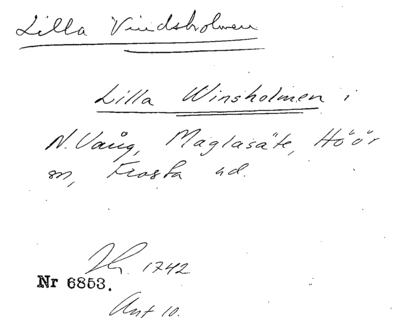 Lilla Vindsholmen
Lilla Winsholmen i
N. Vång, Maglasäte, Höör
sn, Frosta hd.
1742
Nr 6853.
Ant 10.